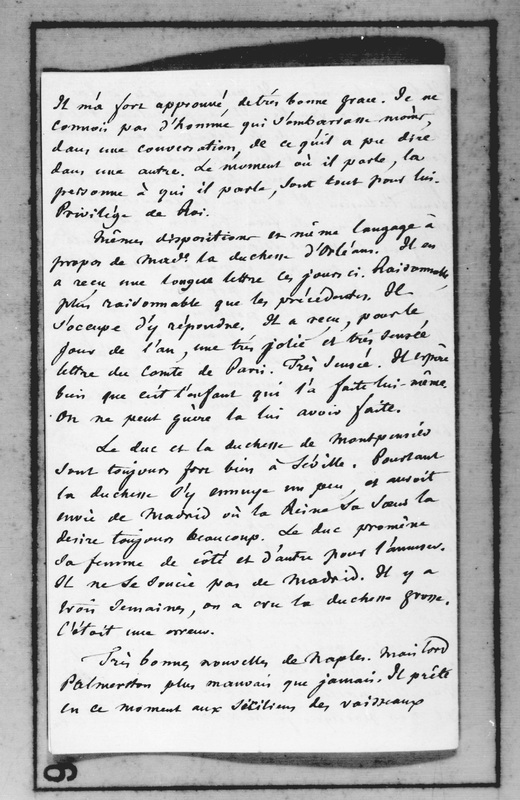 Il m'a fort approuvé, de très bonne grace. Je ne
connois pas d'homme qui s'embarrasse moins,
dans une conversation, de ce qu'il a pu dire
dans une autre. Le moment où il parle, la
personne à qui il parle, sont tout pour lui.
Privilège de Roi.
Mêmes dispositions et même langage à
propos de Mad. la duchesse d'Orléans. Il en
a reçu une longue lettre ces jours ci. Raisonnable,
plus raisonnable que les précédentes. Il
s'occupe d'y répondre. Il a reçu, pour le
jour de l'an, une très jolie et très sensée
lettre du Comte de Paris. Très sensée. Il espère
bien que c'est l'enfant qui l'a faite lui-même.
On ne peut guère la lui avoir faite.
Le duc et la duchesse de Montpensier
sont toujours fort bien à Séville. Pourtant
la duchesse s'y ennuye un peu, et auroit
envie de Madrid où la Reine sa sœur la
desire toujours beaucoup. Le duc promène
sa femme de côté et d'autre pour l'amuser.
Il ne se soucie pas de Madrid. Il y a
trois semaines, on a cru la duchesse grosse.
C'étoit une erreur.
Très bonnes nouvelles de Naples. Mais lord
Palmerston plus mauvais que jamais. Il prête
en ce moment aux Siciliens des vaisseaux
9